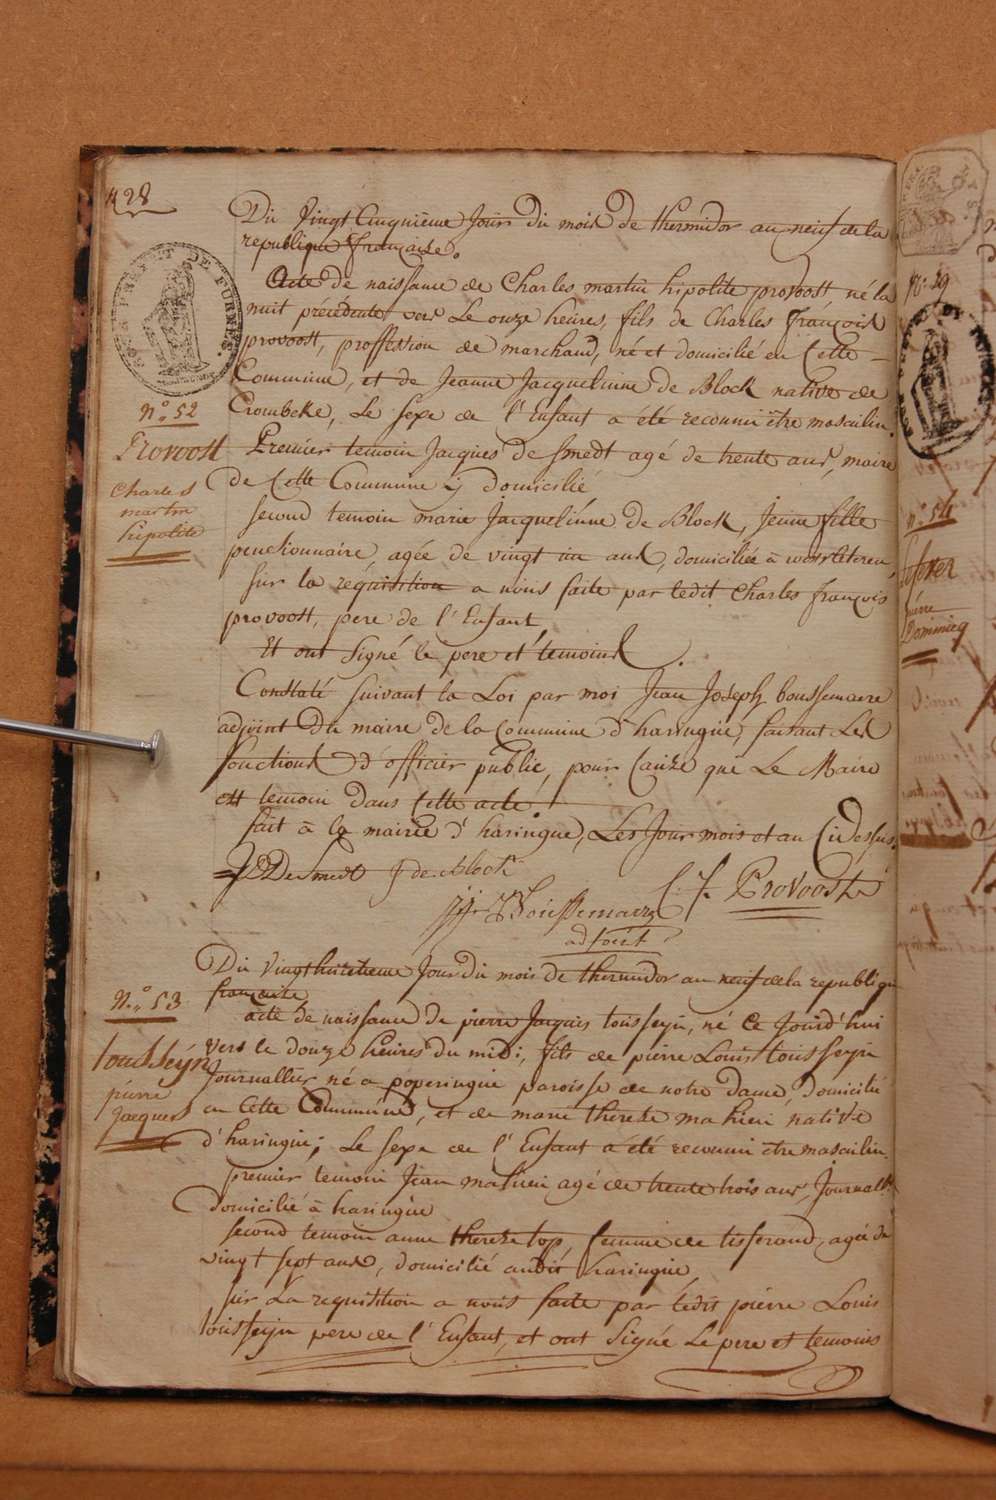 28
Du Vingt Cinquième Jour du mois de thermidor an neuf de la
republique française.
Acte de naissance de Charles martin hipolite provoost né la
nuit précédente vers Le onze heures, fils de Charles françois
provoost, proffession de marchand, né et domicilié en Cette
Commune, et de Jeanne Jacquelinne de Block native de
Crombeke, Le Sexe de l'Enfant a été reconnu être masculin.
Premier temoin Jacques de Smedt agé de trente ans, maire
de Cette Commune y domicilié
second temoin marie Jacquelinne de Block, Jeune fille
pensionnaire, agée de vingt un ans, domiciliée à
sur la réquisition a nous faite par ledit Charles françois
provoost, pere de l'Enfant
Et ont Signé le pere et temoins
Constaté suivant la Loi par moi Jean Joseph boussemaere
adjoint du maire de la Commune d'haringue, faisant Les
fonctions d'officier public, pour Cause que Le Maire
est temoin dans Cette acte.
fait à la mairie d'haringue, Les Jour mois et an Cidessus.
De Smedt J de Block
C. f. Provoost
JJ Boussemaere
adjoint
Du Vingthuitieme Jour du mois de thermidor an neuf de la republique
française
acte de naissance de pierre Jacques tousseyn, né Ce Jourd'hui
vers le douze heures du midi, fils de pierre Louis tousseyn
Journallier né a poperingue paroisse de notre dame, domicilié
en Cette Commune, et de marie therese mahieu native
d'haringue; Le Sexe de l'Enfant a été reconnu être masculin.
premier temoin Jean mahieu agé de trente trois ans, Journallr
domicilié à haringue
second temoin anne therese top, femme de tisserand, agée de
vingt sept ans, domicilié audit haringue
sur La requisition a nous faite par ledit pierre Louis
tousseyn pere de l'Enfant, et ont Signé Le pere et temoins
SOUS PREFET DE FURNES.
N.° 52
Provoost
Charles
martin
hipolite
N.° 53
tousseyn
pierre
Jacques
N.° 54
pierre
Dominicq